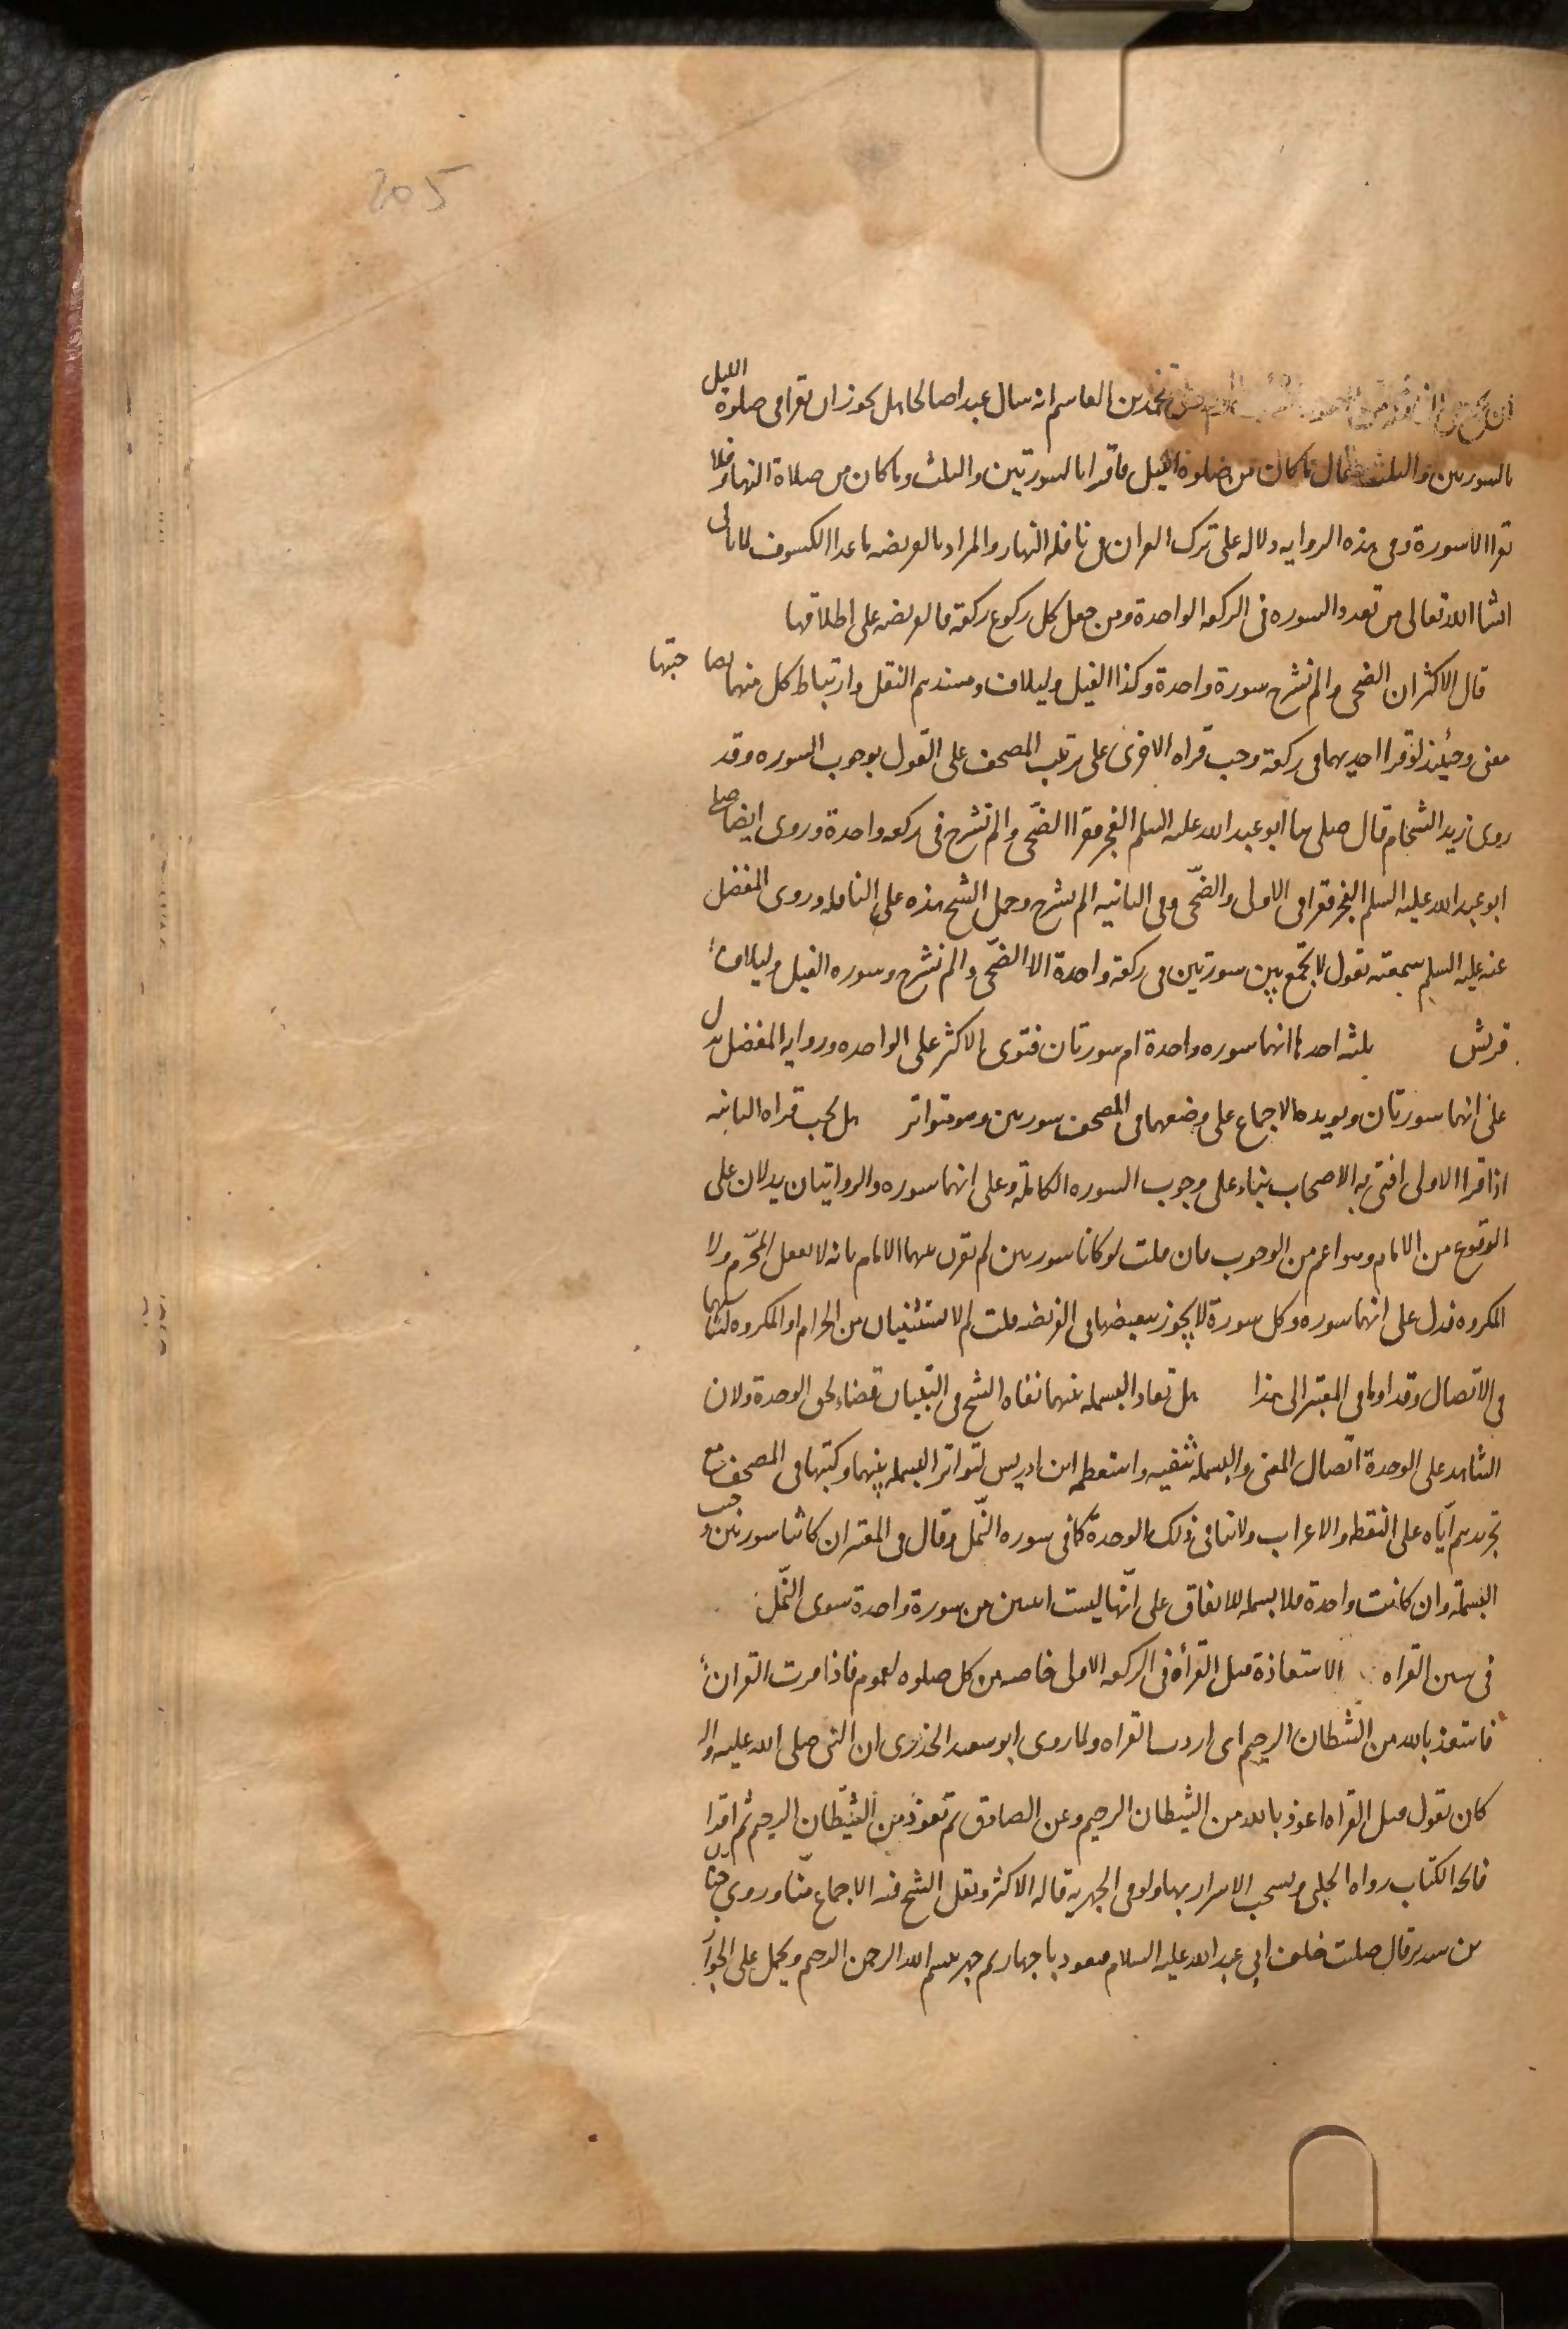 205
محمد بن القاسم انه سال عبدا صالحا هل يجوز ان يقرا فى صلوة الليل
بالسورتين والثلث فقال ما كان من صلوة الليل فاقرا بالسورتين والثلث وما كان من صلاة النهار فلا
تقرا الا سورة وفى هذه الروايه دلاله على ترك القران فى نافله النهار والمراد بالفريضه ما عدا الكسوف لما ياتى
انشا الله تعالى من تعدد السوره فى الركعه الواحدة ومن جعل كل ركوع ركعة فالفريضه على اطلاقها
قال الاكثر ان الضحى والم نشرح سورة واحدة وكذا الفيل وليلاف ومستندهم النقل وارتباط كل منهما بصاحبتها
معنى وحينئذ لو قرا احديهما فى ركعة وجب قراه الاخرى على ترتيب المصحف على القول بوجوب السوره وقد
روى زيد الشحام قال صلى بنا ابو عبد الله عليه السلم الفجر فقرا الضّحى والم نشرح فى ركعه واحدة وروى ايضا صلى
ابو عبد الله عليه السلم الفجر فقرا فى الاولى والضّحى وفى الثانيه الم نشرح وحمل الشيخ هذه على النافله وروى المفضل
عنه عليه السلم سمعته يقول لا تجمع بين سورتين فى ركعة واحدة الا الضّحى والم نشرح وسوره الفيل وليلاف
قريش ثلثه احدها انهما سوره واحدة ام سورتان فتوى الاكثر على الواحده وروايه المفضل تدل
على انهما سورتان ويويده الاجماع على وضعهما فى المصحف سورتين وهو متواتر هل تجب قراه الثانيه
اذا قرا الاولى افتى به الاصحاب بناء على وجوب السوره الكاملة وعلى انهما سوره والروايتان يدلان على
الوقوع من الامام وهو اعم من الوجوب فان قلت لو كانا سورتين لم يقرن بينهما الامام لانه لا يفعل المحّرم ولا
المكروه فدل على انهما سوره وكل سورة لا يجوز تبعيضها فى الفريضه قلت لم لا تستثنيان من الحرام او المكروه لتناسبهما
فى الاتصال وقد اوما فى المعتبر الى هذا هل تعاد البسمله بينهما نفاه الشيخ فى التبيان قضاء لحق الوحدة ولان
الشاهد على الوحدة اتّصال المعنى والبسملة تنفيه واستعظمه ابن ادريس لتواتر البسمله بينهما وكتبها فى المصحف مع
تجريدهم ايّاه على النقط والاعراب ولا تنافى ذلك الوحدة كما فى سوره النّمل وقال فى المعتبر ان كانتا سورتين وجب
البسملة وان كانت واحدة فلا بسمله للاتفاق على انّها ليست ايتين من سورة واحدة سوى النّمل
فى سنن القراه الاستعاذة قبل القرأة فى الركعه الاولى خاصه من كل صلوه لعموم فاذا قرت القران
فاستعذ بالله من الشّطان الرجيم اى اردت القراه ولما روى ابو سعيد الخدرى ان النبى صلى الله عليه واله
كان يقول قبل القراه اعوذ بالله من الشيطان الرجيم وعن الصادق ثم تعوذ من الشّيطان الرجيم ثم اقرا
فاتحه الكتاب رواه الحلبى ويستحب الاسرار بها ولو فى الجهريه قاله الاكثر ونقل الشيخ فيه الاجماع منّا وروى حنان
بن سدير قال صليت خلف ابى عبد الله عليه السلام فتعوذ باجهار ثم جهر ببسم الله الرحمن الرحيم ويحمل على الجواز